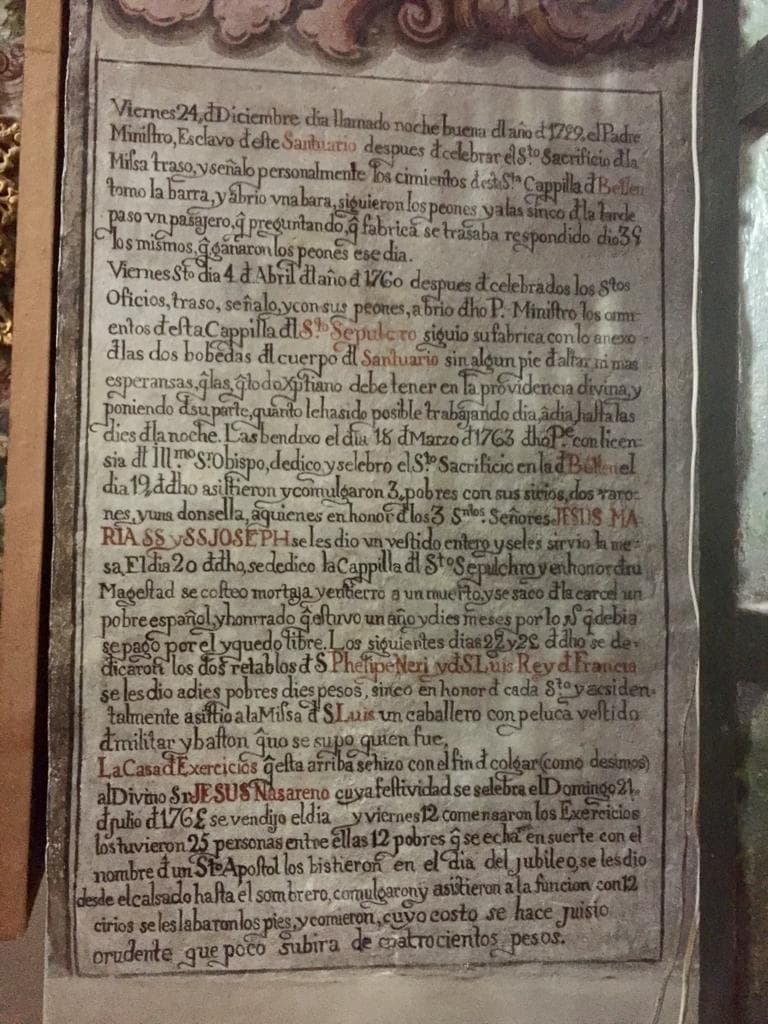 Viernes 24, đ Diciembre dia llamado noche buena đl año đ 1799, el Padre
Ministro, Esclavo đ este Santuario despues đ celebrar el Sto Sacrificio đ la
Missa traso, y señalo personalmente los cimientos đ esta Sta Cappilla đ Bellen
tomo la barra, y abrio vna bara, siguieron los peones y a las sinco đ la tarde
paso vn pasajero, q̃ preguntando, q̃ fabrica se trasaba respondido dio 39
los mismos, q̃ gañaron los peones ese dia.
Viernes Sto dia 4 đ Abril đl año đ 1760 despues đ celebrados los Stos
Oficios, traso, señalo, y con sus peones, abrio đho P. Ministro los cimi-
entos đ esta Cappilla đl Sto Sepulcro siguio su fabrica con lo anexo
đ las dos bobedas đl cuerpo đl Santuario sin algun pie đ altar, ni mas
esperansas, q̃ las, q̃ todo Xptiano debe tener en la providencia divina, y
poniendo đ su parte, quanto le ha sido posible trabajando dia, a dia, hasta las
dies đ la noche. Las bendixo el dia 18 đ Marzo đ 1763 đho Pe. con licen-
sia đl Ill.mo Sr Obispo, dedico y selebro el Sto Sacrificio en la đ Bellen el
dia 19, đ đho asistieron y comulgaron 3, pobres con sus sirios, dos varo-
nes, y una donsella, a quienes en honor đ los 3 Sntos. Señores JESUS MA-
RIA SS y SS JOSEPH se les dio un vestido entero y se les sirvio la me-
sa, El dia 20 đ đho, se dedico la Cappilla đl Sto Sepulchro y en honor đ su
Magestad se costeo mortaja, y entierro a un muerto, y se saco đ la carcel un
pobre español, y honrrado q̃ estuvo un año y dies meses por lo q̃ debia
se pago por el y quedo libre. Los siguientes dias 22 y 25 đ đho se de-
dicaron los dos retablos đ S Phelipe Neri y đ S Luis Rey đ Francia
se les dio a dies pobres dies pesos, sinco en honor đ cada Sto y acsiden-
talmente asistio a la Missa đ S Luis un caballero con peluca vestido
đ militar y baston q̃ no se supo quien fue,
La Casa đ Exercicios q̃ esta arriba se hizo con el fin đ colgar (como desimos)
al Divino Sr JESUS Nasareno cuya festividad se selebra el Domingo 21.
đ julio đ 1765 se vendijo el dia y viernes 12 comensaron los Exercicios
los tuvieron 25 personas entre ellas 12 pobres q̃ se echan en suerte con el
nombre đ un Sto Apostol los bistieron en el dia del jubileo, se les dio
desde el calsado hasta el sombrero, comulgaron y asistieron a la funcion con 12
cirios se les labaron los pies, y comieron, cuyo costo se hace juisio
prudente que poco subira de cuatrocientos pesos.